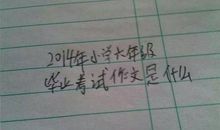 2014年小学六年级
毕业考试作文是什么